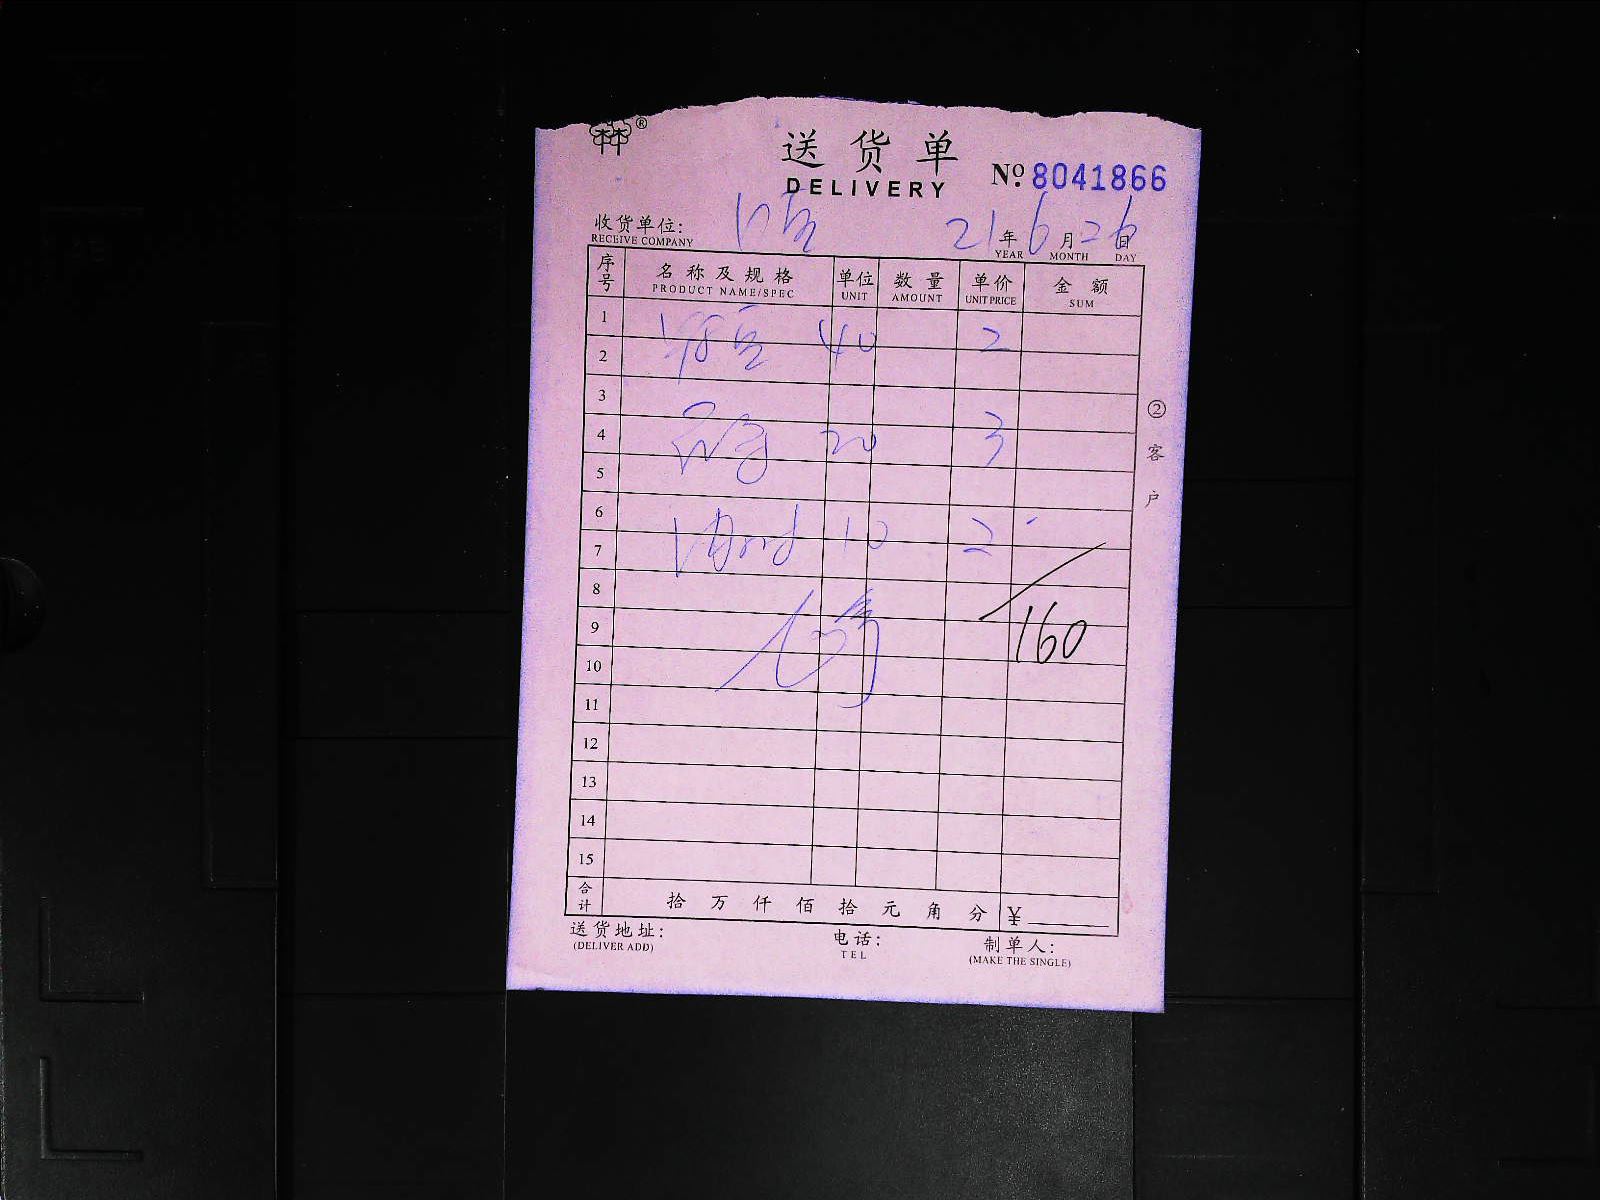 ®
送货单
DELIVERY
№ 8041866
收货单位:
RECEIVE COMPANY
21年6月26日
YEAR MONTH DAY
序号 名称及规格 单位 数量 单价 金额
PRODUCT NAME/SPEC UNIT AMOUNT UNIT PRICE SUM
1
40 2
2
3
20 3
4
5
6
10 2
7
8
160
9
10
11
12
13
14
15
合计 拾 万 仟 佰 拾 元 角 分 ¥
送货地址: 电话: 制单人:
(DELIVER ADD) TEL (MAKE THE SINGLE)
②客户